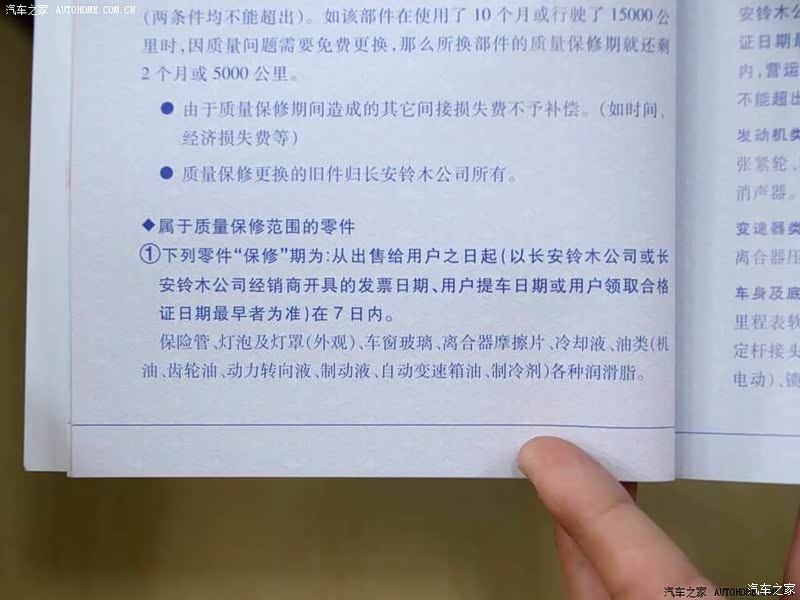 汽车之家 AUTOHOME.COM.CN
(两条件均不能超出)。如该部件在使用了 10 个月或行驶了 15000 公
里时,因质量问题需要免费更换,那么所换部件的质量保修期就还剩
2 个月或 5000 公里。
● 由于质量保修期间造成的其它间接损失费不予补偿。(如时间、
经济损失费等)
● 质量保修更换的旧件归长安铃木公司所有。
◆属于质量保修范围的零件
①下列零件“保修”期为:从出售给用户之日起(以长安铃木公司或长
安铃木公司经销商开具的发票日期、用户提车日期或用户领取合格
证日期最早者为准)在 7 日内。
保险管、灯泡及灯罩(外观)、车窗玻璃、离合器摩擦片、冷却液、油类(机
油、齿轮油、动力转向液、制动液、自动变速箱油、制冷剂)各种润滑脂。
安铃木公
证日期最
内,营运
不能超出
发动机类
张紧轮、
消声器。
变速器类
离合器压
车身及底
里程表软
定杆接头
电动)、锁
汽车之家 AUTOHOME
汽车之家